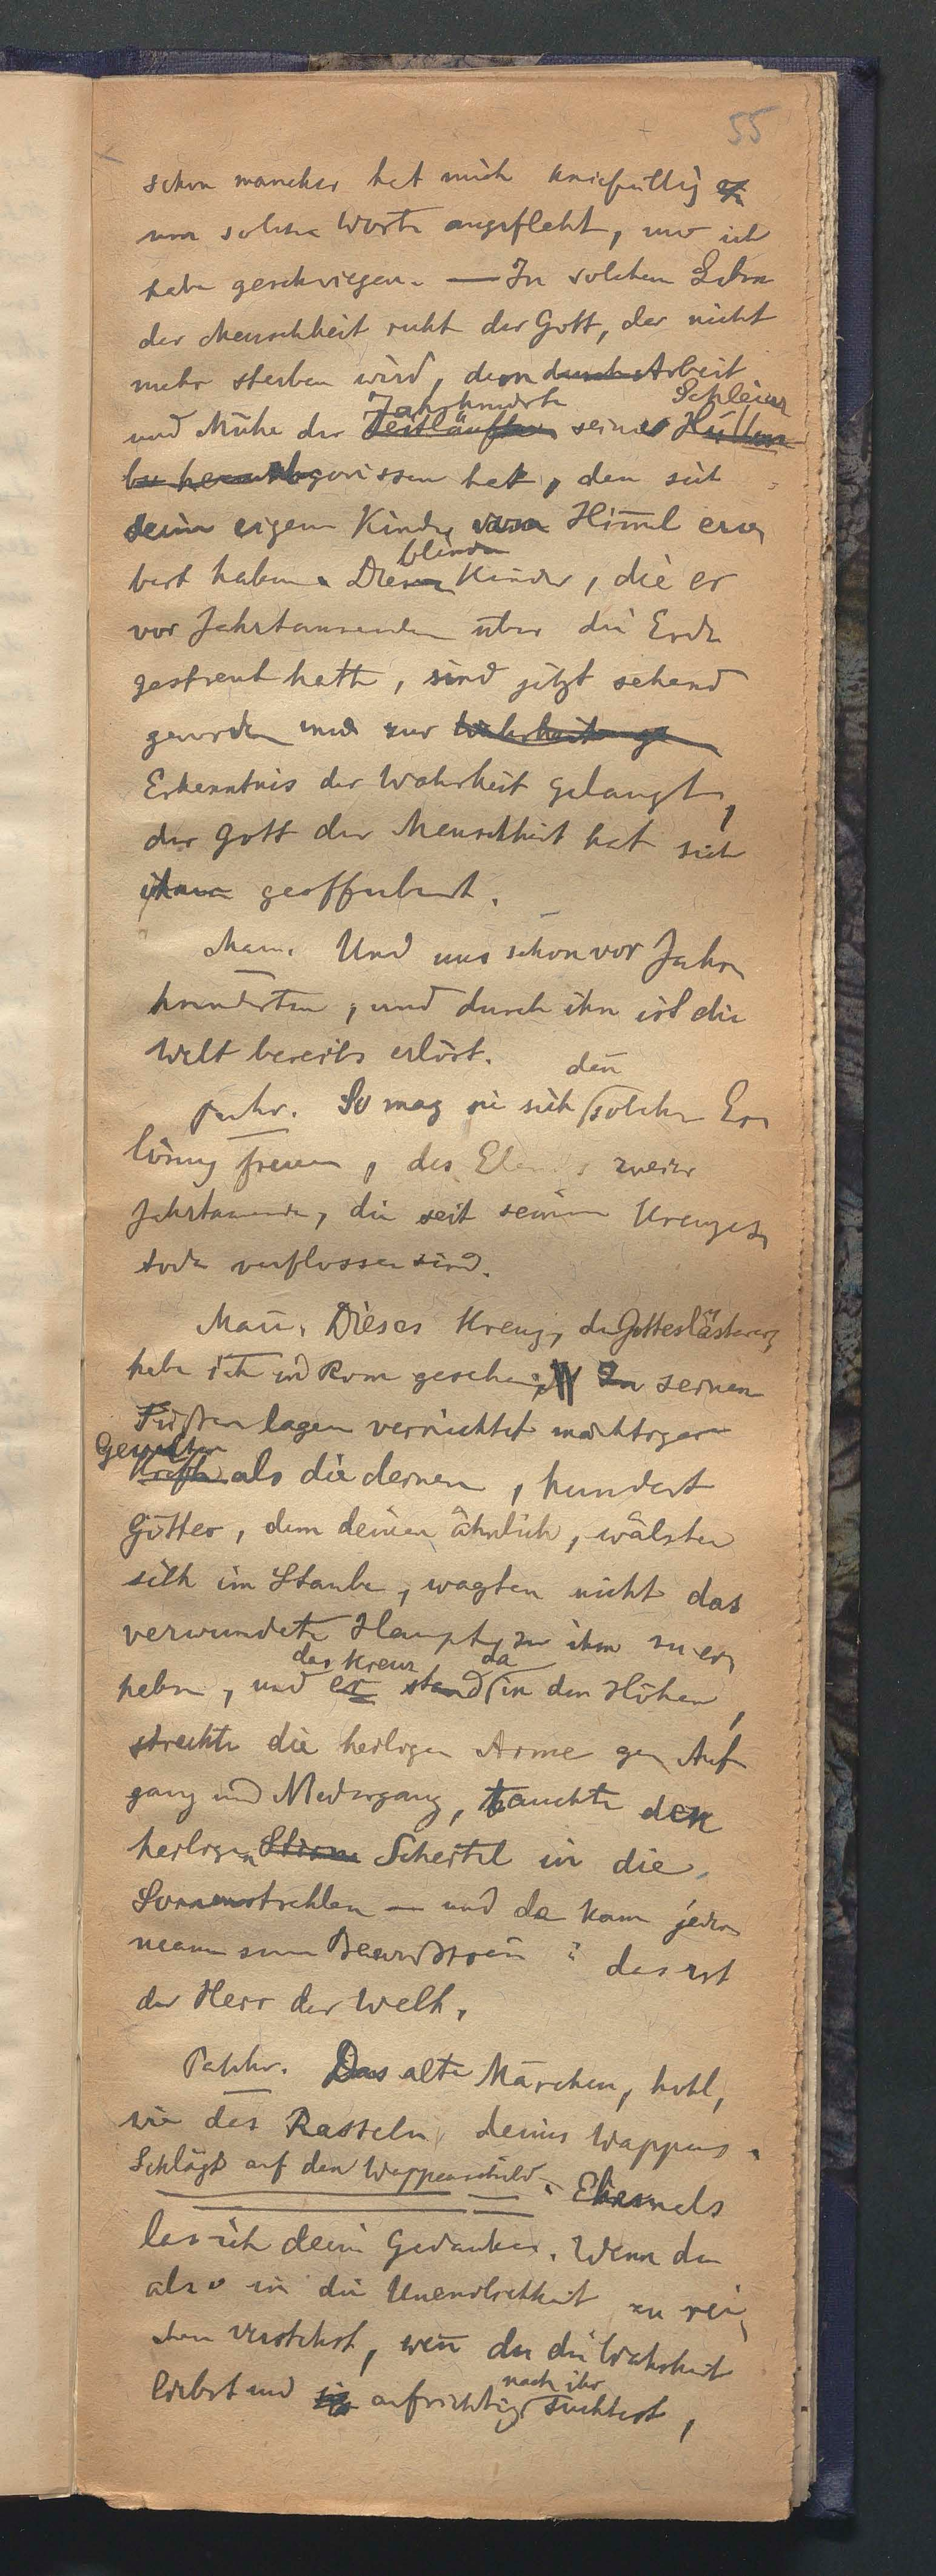 55
schon mancher hat mich kniefällig
um solche Worte angefleht, und ich
habe geschwiegen. — In solchen Lehren
der Menschheit ruht der Gott, der nicht
mehr sterben wird, dem durch Arbeit
und Mühe der Jahrhunderte Zeitläuften seines Schleier Hüllen
herabgerissen hat, den sich
seine eigenen Kinder vom Himmel ero-
bert haben. Diese blinden Kinder, die er
vor Jahrtausenden über die Erde
gestreut hatte, sind jetzt sehend
geworden und zur Wahrheit ge
Erkenntnis der Wahrheit gelangt,
der Gott der Menschheit hat sich
ihnen geoffenbart.
Mann. Und uns schon vor Jahr-
hunderten, und durch ihn ist die
Welt bereits erlöst.
Pankr. So mag sie sich den solcher Er-
lösung freuen, des Elends zweier
Jahrtausende, die seit seinem Kreuzes-
tode verflossen sind.
Mann. Dieses Kreuz, du Gotteslästerer,
habe ich in Rom gesehen. Zu seinen
Füßen lagen vernichtet mächtigere
Gewalten Kräfte als die deinen, hundert
Götter, dem deinen ähnlich, wälzten
sich im Staube, wagten nicht das
verwundete Haupt zu ihm zu er-
heben, und er das Kreuz stand da in den Höhen,
streckte die heiligen Arme gen Auf-
gang und Niedergang, tauchte den
heiligen Stirne Scheitel in die
Sonnenstrahlen — und da kam jeder-
mann zum Bewußtsein: das ist
der Herr der Welt.
Pankr. Das alte Märchen, hohl,
wie das Rasseln deines Wappens.
Schlägt auf den Wappenschild. Ehemals
las ich deine Gedanken. Wenn du
also in die Unendlichkeit zu rei-
chen verstehst, wenn du die Wahrheit
liebst und sie aufrichtig nach ihr suchtest,